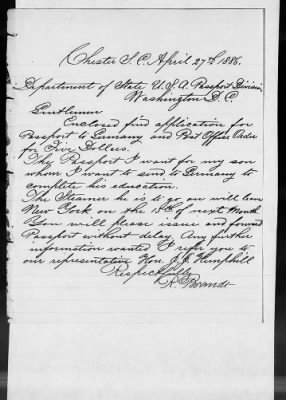 Chester S.C. April 27th 1886.
Department of State U.S.A. Passport Division
Washington D.C.
Gentlemen
Enclosed find application for
Passport to Germany and Post Office Order
for Five Dollars.
The Passport I want for my son
whom I want to send to Germany to
complete his education.
The Steamer he is to go on will leave
New York on the 15th of next Month
Soon will please issue and forward
Passport without delay. Any further
information wanted I refer you to
our representative Hon. J.J. Hemphill
Respectfully
R. Brandt